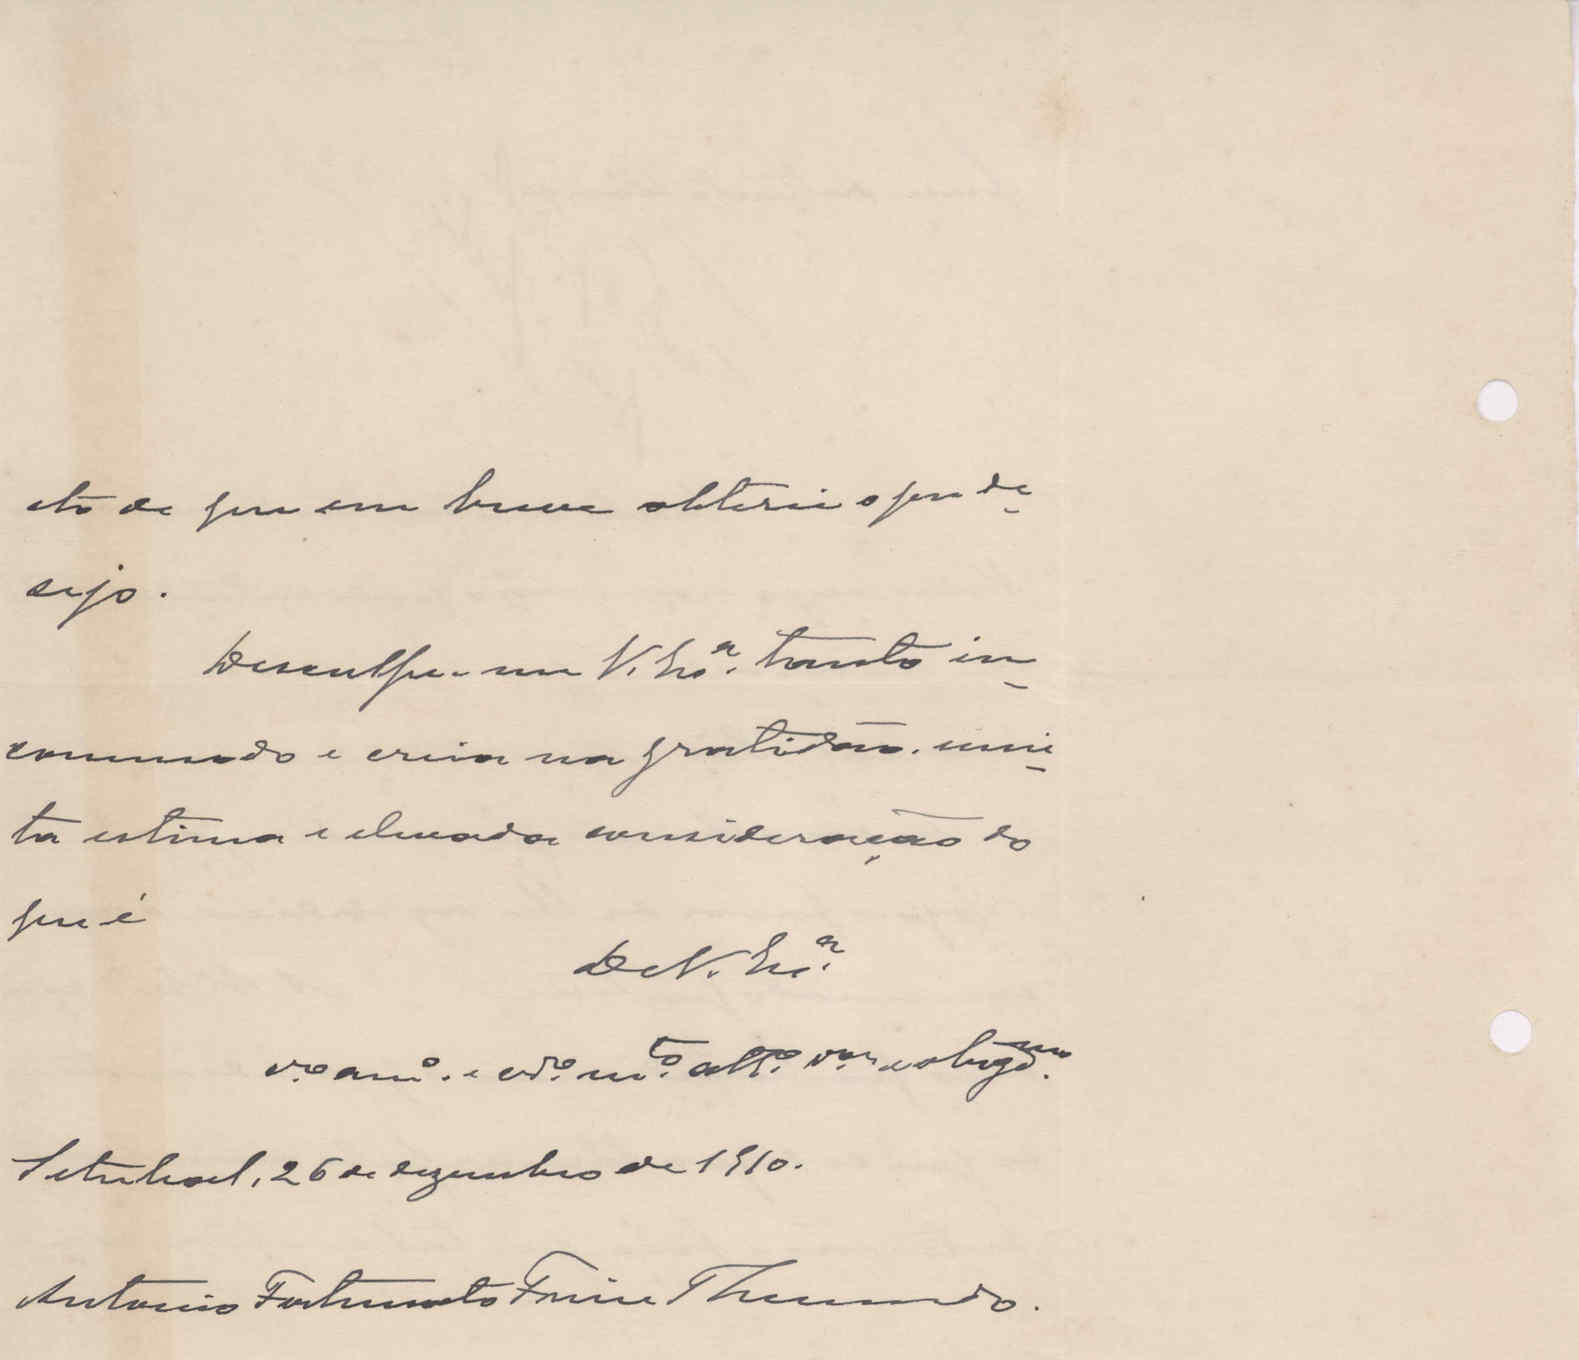 cto de que em breve obterei o que de-
sejo.
Desculpe-me V. Exª. tanto in-
commodo e creia na gratidão, mui-
ta estima e elevada consideração do
que é
De V. Exª.
amº. e crº. mtº. attº. vor. e obrigdmo.
Setubal, 26 de dezembro de 1910.
Antonio Fortunato Freire Themudo.